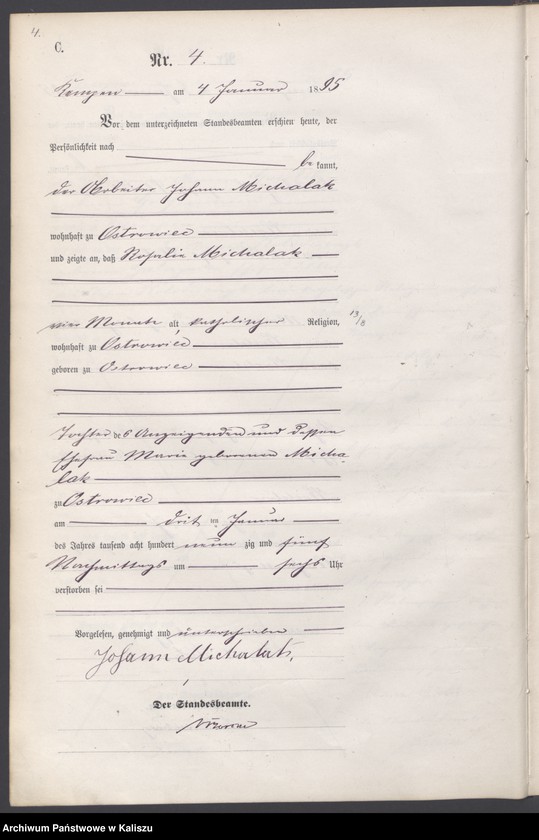 4.
C.
Nr. 4.
Kempen am 4 Januar 1895
Vor dem unterzeichneten Standesbeamten erschien heute, der
Persönlichkeit nach
be kannt,
der Arbeiter Johann Michalak
wohnhaft zu Ostrowiec
und zeigte an, daß Rosalie Michalak
vier Monate alt, katholischer Religion,
13/8
wohnhaft zu Ostrowiec
geboren zu Ostrowiec
Tochter des Anzeigenden und dessen
Ehefrau Marie geborenen Micha-
lak
zu Ostrowiec
am dritten Januar
des Jahres tausend acht hundert neun zig und fünf
Nachmittags um sechs Uhr
verstorben sei
Vorgelesen, genehmigt und unterschrieben
Johann Michalak,
Der Standesbeamte.
Archiwum Państwowe w Kaliszu